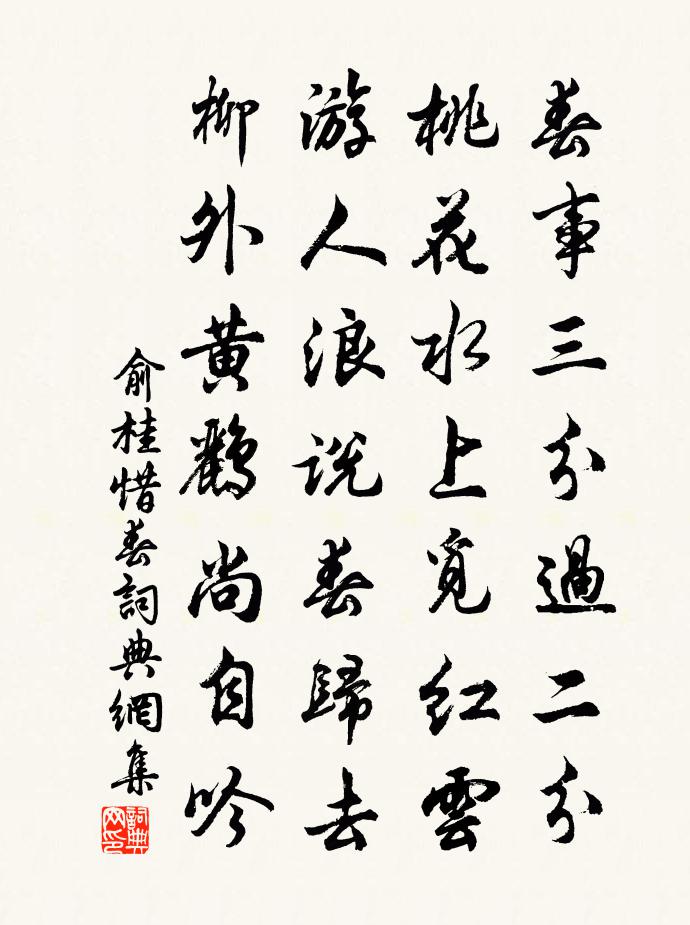 春事三分過二分
桃花水上覓紅雲
游人浪說春歸去
柳外黄鸝尚自吟
俞桂惜春詞典網集
詞典
网印